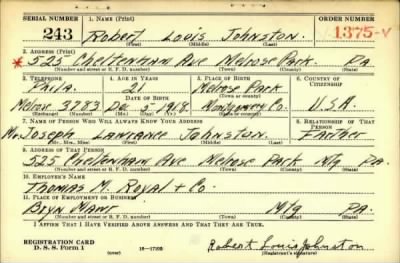 SERIAL NUMBER 1. NAME (Print) ORDER NUMBER
243 Robert Louis Johnston 1375-V
(First) (Middle) (Last)
2. ADDRESS (Print)
* 525 Cheltenham Ave Melrose Park. PA.
(Number and street or R. F. D. number) (Town) (County) (State)
3. TELEPHONE 4. AGE IN YEARS 5. PLACE OF BIRTH 6. COUNTRY OF CITIZENSHIP
Phila. 21 Melrose Park
DATE OF BIRTH
Melrose 3783 Dec 5 1918. Montgomery Co. U.S.A.
7. NAME OF PERSON WHO WILL ALWAYS KNOW YOUR ADDRESS 8. RELATIONSHIP OF THAT PERSON
Mr. Joseph Lawrance Johnston. Father
(Mr., Mrs., Miss) (First) (Middle) (Last)
9. ADDRESS OF THAT PERSON
525 Cheltenham Ave Melrose Park Mtg PA.
(Number and street or R. F. D. number) (Town) (County) (State)
10. EMPLOYER'S NAME
Thomas M. Royal + Co.
11. PLACE OF EMPLOYMENT OR BUSINESS
Bryn Mawr Mtg PA.
(Number and street or R. F. D. number) (Town) (County) (State)
I AFFIRM THAT I HAVE VERIFIED ABOVE ANSWERS AND THAT THEY ARE TRUE.
REGISTRATION CARD
D. S. S. Form 1 16-17105 Robert Louis Johnston
(Registrant's signature)